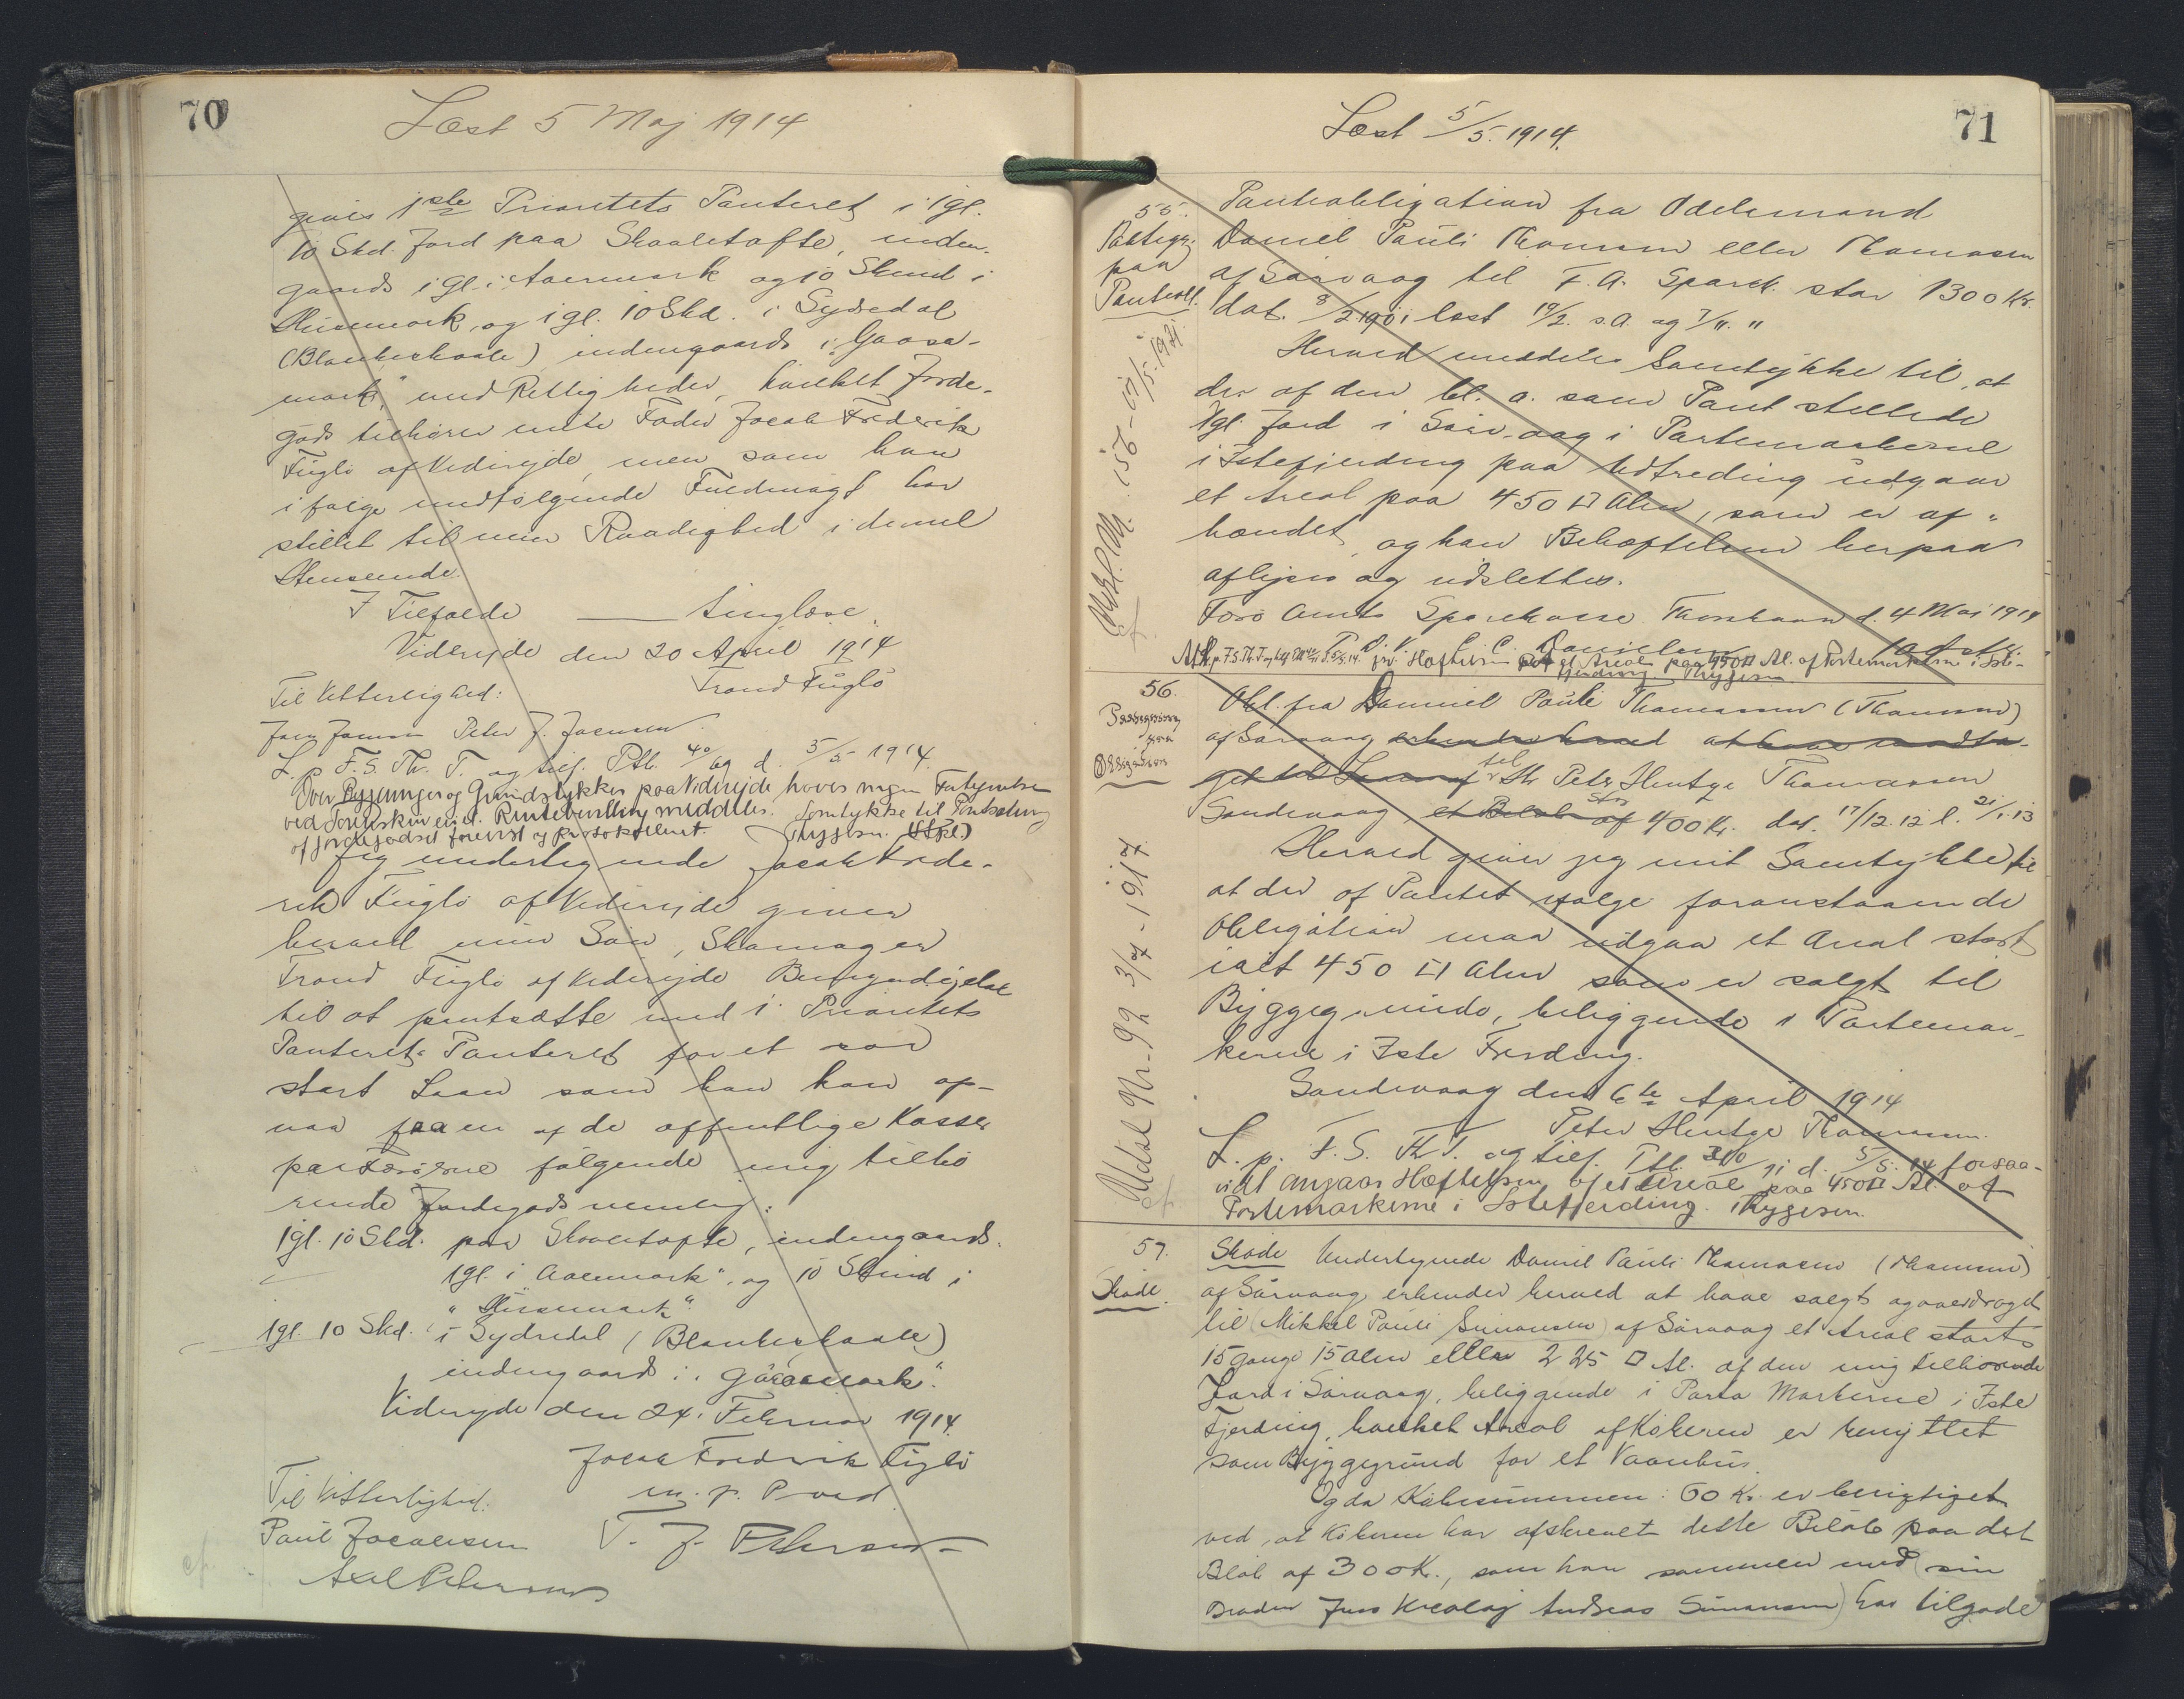 70
Læst 5 Maj 1914
giver 1ste Prioritets Panteret i 1 gl.
10 Skd. Jord paa Skaaletofte, inden-
gaards 1 gl. i Aaemark og 10 Skind i
Husemark, og 1 gl. 10 Skd. i Sydredal
(Blankeskaale) indengaards i "Gaasa-
mark" med Rettigheder, hvilket Jorde-
gods tilhører min Fader Jacob Frederik
Fuglø af Viderejde, men som han
ifølge medfølgende Fuldmagt har
stillet til min Raadighed i denne
Henseende.
I Tilfælde — tinglæse.
Viderejde den 20 April 1914
Trond Fuglø
Til Vitterlighed:
Joen Joensen Peter J. Joensen
L. p. F. S. Th. T. og tilf. Ptb. 40/69 d. 5/5 1914.
Over Bygninger og Grundstykker paa Viderejde haves ingen Forsyntsen
ved Sorenskriveriet. Rentebevilling meddeles. Samtykke til Pantsætning
af Jordegodset forevist og protokolleret. Thygesen. (Stpl.)
Jeg undertegnede Jacob Frede-
rik Fuglø af Viderejde giver
herved min Søn, Skomager
Trond Fuglø af Viderejde Bemyndigelse
til at pantsætte med 1' Prioritets
Panteret Panteret for et saa
stort Laan som han kan op-
naa fra en af de offentlige Kasser
paa Færøerne følgende mig tilhø
rende Jordegods nemlig:
1 gl. 10 Skd. paa Skaaletofte, indengaards.
1 gl. i "Aaemark", og 10 Skind i
"Husemark"
1 gl. 10 Skd. i Sydredal (Blankeskaale)
indengaards i "Gaasamark".
Viderejde den 24. Februar 1914.
Jacob Fredrik Fuglø
m. p. Pved.
Til Vitterlighed:
Paul Jocobsen T. J. Petersen
Axel Petersen
71
Læst 5/5. 1914.
55.
Paategn.
paa
Panteobl.
Panteobligation fra Odelsmand
Daniel Pauli Thomsen eller Thomasen
af Sørvaag til F. A. Spark. stor 1300 Kr.
dat. 8/2 1901 læst 19/2. s.A. og 7/11. "
Herved meddeles Samtykke til, at
der af den bl. a. som Pant stillede
1 gl. Jord i Sørvaag i Partemarkerne
i Istefjerding paa Udtreding udgaar
et Areal paa 450 □ Alen, som er af-
hændet, og kan Behæftelsen herpaa
aflyses og udslettes.
Færø Amts Sparekasse Thorshavn d. 4 Mai 1914
C. C. Danielsen
Afl. p. F. S. Th. T. 5/5. 14. for Hæftelsen paa et Areal paa 450 □ Al. af Partemarkerne i Iste-
fjerding. Thygesen
56.
Paategning
paa
Obligation
Obl. fra Danniel Pauli Thomassen (Thomsen)
af Sørvaag erkender herved at have modta-
get til Laans af til Hr Peter Hentze Thomassen
Sandevaag, et Beløb af stor 400 Kr. dat. 17/12. 12 l. 21/1. 13
Herved giver jeg mit Samtykke til
at der af Pantet ifølge foranstaaende
Obligation maa udgaa et Areal stort
ialt 450 □ Alen som er solgt til
Byggegrunde, beliggende i Partemar-
kerne i Iste Fjerding.
Sandevaag den 6te April 1914
Peter Hentze Thomassen.
L. p. F. S. Th T. og tilf. Ptb. d. 5/5. 14 forsaa-
vidt angaar Hæftelsen af et Areal paa 450 □ Al. af
Partemarkerne i Istefjerding. Thygesen.
Udsl Nr. 92 3/7 - 1917
57.
Skøde.
Skøde Undertegnede Daniel Pauli Thomasen (Thomsen)
af Sørvaag erkender herved at have solgt og overdraget
til (Mikkel Pauli Simonsen) af Sørvaag et Areal stort
15 Gange 15 Alen eller 225 □ Al. af den mig tilhørende
Jord i Sørvaag, beliggende i Parta Markerne i Iste
Fjerding, hvilket Areal af Køberen er benyttet
som Byggegrund for et Vaanhus.
Og da Købesummen: 60 Kr. er berigtiget
ved, at Køberen har afskrevet dette Beløb paa det
Bløb af 300 Kr., som han sammen med (sin
Broder Jens Nicolaj Andreas Simonsen) har tilgode